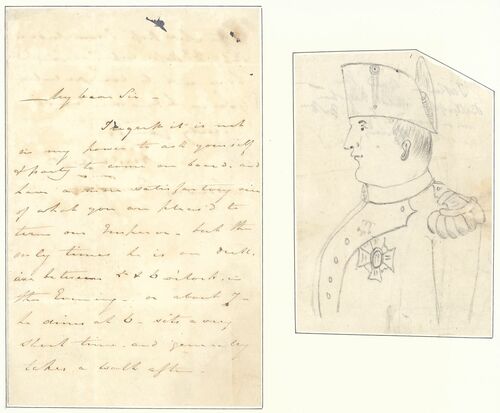 My Dear Sir -
I regret it is not
in my power to ask yourself
& party to come on board, and
have a more satisfactory view
of what you are pleas'd to
term our Emperor - but the
only times he is on deck,
are between & 6 o'clock in
the Evening - or about 7 -
he dines at 6 - sits a very
short time - and generally
takes a walk after -